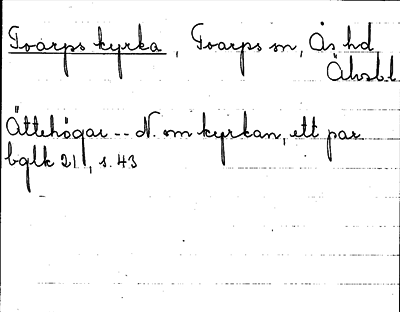 Toarps kyrka, Toarps sn, Ås hd
Älvsb.l
Ättehögar -- N. om kyrkan, ett par
bglk 21, s. 43